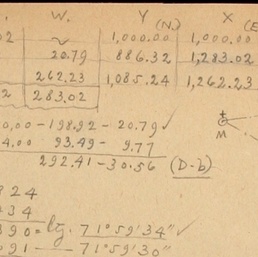 W. Y (N.) X (E
02 1,000.00 1,000.00
20.79 886.32 1,283.02
262.23 1,085.24 1,262.23
2 283.02
0,00 - 198.92 - 20.79 ✓
4.00 93.49 - 9.77
M
292.41 - 30.56 (D-b)
824
234
390 = ltg. 71°59'34" ✓
091 — 71°59'30"